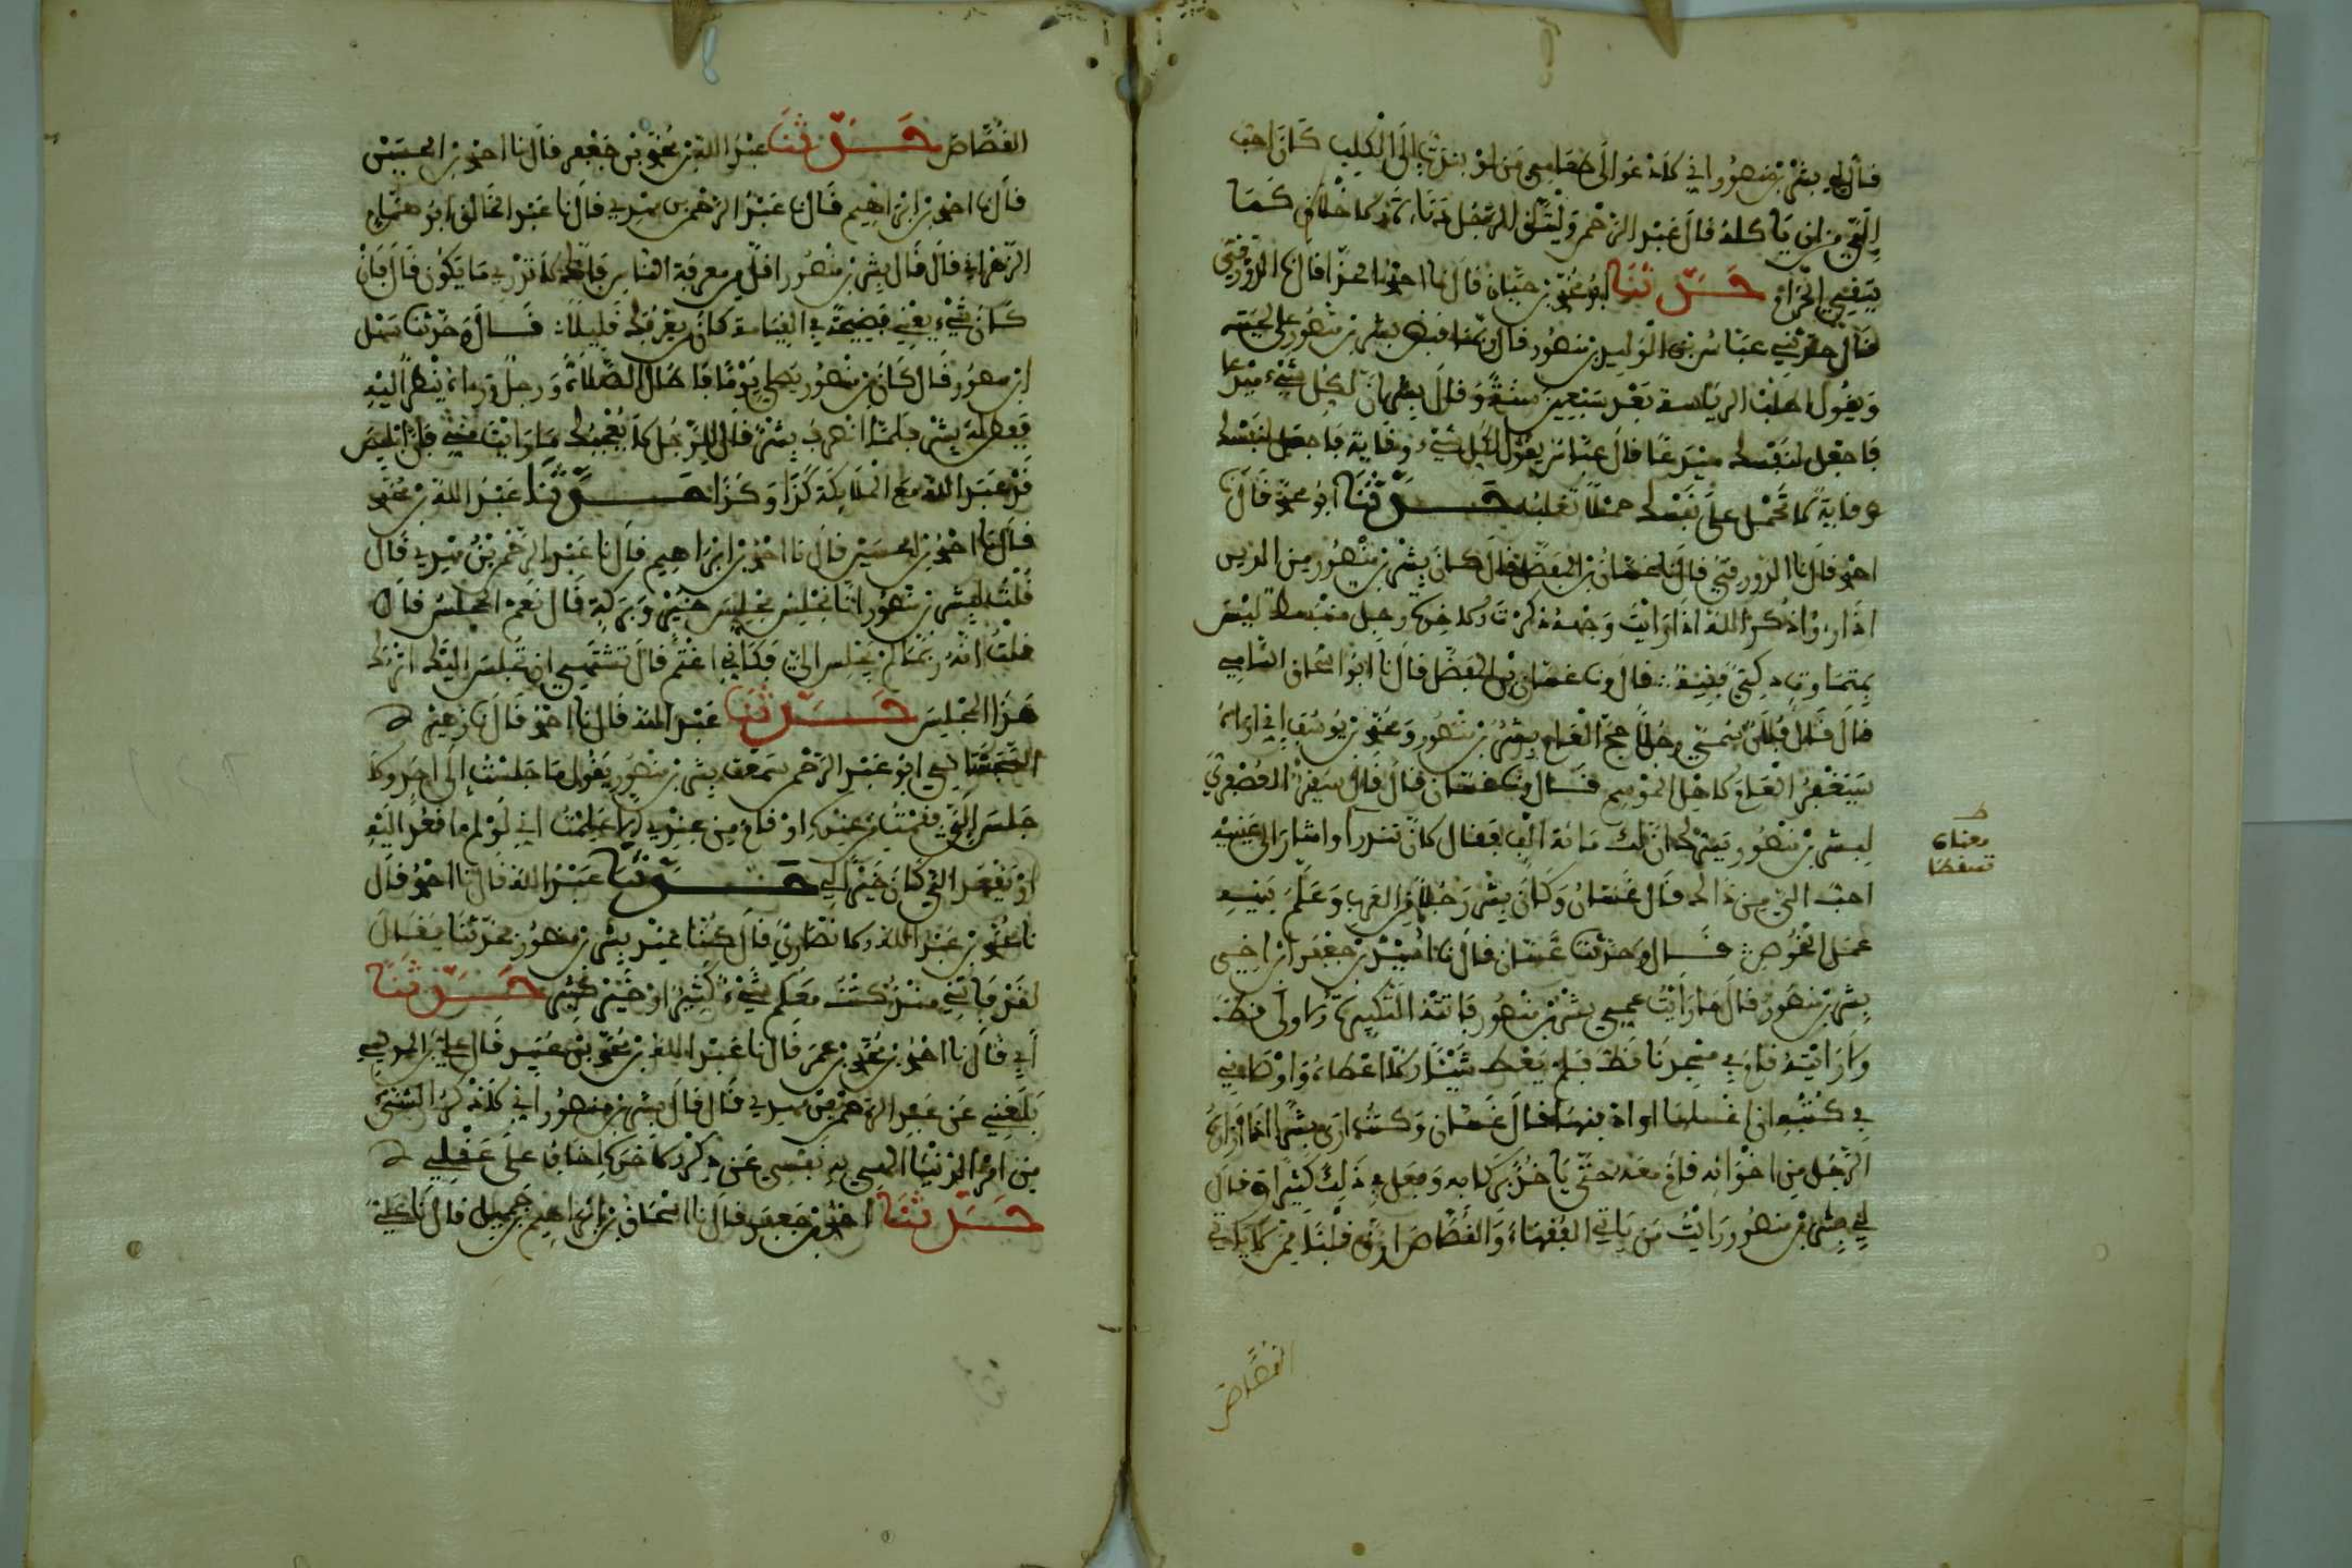 قال لي بشر بن منصور اني لاادعو الى طعامي من لو نبذته الى الكلب كان احب
الي من ان ياكله قال عبد الرحمن وليتق الرجل دناءة الاخلاق كما
يتقي الحرام حدثنا ابو محمد بن حيان قال نا احمد الحذا قال نا الدورقي
قال حدثني عباس بن الوليد بن نصر قال ربما قبض بشر بن منصور على لحيته
ويقول اطلب الرياسة بعد سبعين سنة وقال بشر ان لكل شيء
فاجعل لنفسك قال عباس يقول لكل شيء وقاية فاجعل لنفسك
وقاية لا تحمل على نفسك حملا تغلبه حدثنا ابو محمد قال نا
احمد قال نا الدورقي قال نا غسان بن المفضل قال كان بشر بن منصور من الذين
اذا رءوا ذكر الله اذا رايت وجهه ذكرت الاخرة رجل منبسط ليس
بمتماوت ذكي فقيه قال ونا غسان بن المفضل قال نا ابو اسحاق الشامي
قال قال رجلا حج العام بشر بن منصور ومحمد بن يوسف اني اراه
سيغفر العام لاهل الموسم قال ونا غسان قال قال
لبشر بن منصور يسرك ان لك مائة الف فقال لان تندرا واشار الى عينيه
احب الي من ذالك قال غسان وكان بشر رجلا من العرب وعلم بنيه
عمل الخوص قال وحدثنا غسان قال نا اسيد بن جعفر ابن اخي
بشر بن منصور قال ما رايت عمي بشر بن منصور فاتته التكبيرة الاولى قط
ولا رايته قام في مسجدنا قط فلم يعط شيئا الا اعطاه واوصاني
في كتبه ان اغسلها او ادفنها قال غسان وكنت ارى بشرا اذا زاره
الرجل من اخوانه قام معه حتى ياخذ بركابه وفعل بي ذلك كثيرا وقال
لي بشر بن منصور رايت من ياتي الفقهاء والقصاص ارق قلبا ممن لا ياتي
معناه
تسقطا
القصاص
القصاص حدثنا عبد الله بن محمد بن جعفر قال نا احمد بن الحسين
قال نا احمد بن ابراهيم قال نا عبد الرحمن بن مهدي قال نا عبد الخالق ابو همام
الزهراني قال قال بشر بن منصور اقل من معرفة الناس فانك لا تدري ما يكون قال فان
كان شيء يعني فضيحة في القيامة كان من يعرفك قليلا قال وحدثنا سهل
ابن منصور قال كان بشر بن منصور يصلي يوما فاطال الصلاة ورجل وراءه ينظر اليه
ففطن له بشر فلما انصرف بشر قال للرجل لا يعجبك ما رايت مني فان ابليس
قد عبد الله مع الملايكة كذا وكذا حدثنا عبد الله بن محمد
قال نا احمد بن الحسين قال نا احمد بن ابراهيم قال نا عبد الرحمن بن مهدي قال
قلت لبشر بن منصور انا نجلس مجلس خير وبركة قال نعم المجلس قال
قلت انه ربما لم يجلس الي فكاني اغتم قال تشتهي ان يجلس اليك اترك
هذا المجلس حدثنا عبد الله قال نا احمد قال نا زهير
السجستاني ابو عبد الرحمن سمعت بشر بن منصور يقول ما جلست الى احد ولا
جلس الي فقمت من عنده او قام من عندي الا علمت اني لو لم اقعد اليه
او يقعد الي كان خيرا لي حدثنا عبد الله قال نا احمد قال
نا محمد بن عبد الله الانصاري قال كنا عند بشر بن منصور يحدثنا فقال
لقد فاتني منذ كنت معكم شيء كثير او خير كثير حدثنا
ابي قال نا احمد بن محمد بن عمر قال نا عبد الله بن محمد بن عبيد قال علي بن المديني
بلغني عن عبد الرحمن بن مهدي قال قال بشر بن منصور اني لاذكر الشيء
من امر الدنيا الهي به نفسي عن ذكر الاخرة اخاف على عقلي
حدثنا احمد بن جعفر قال نا اسحاق بن ابراهيم بن جميل قال نا علي